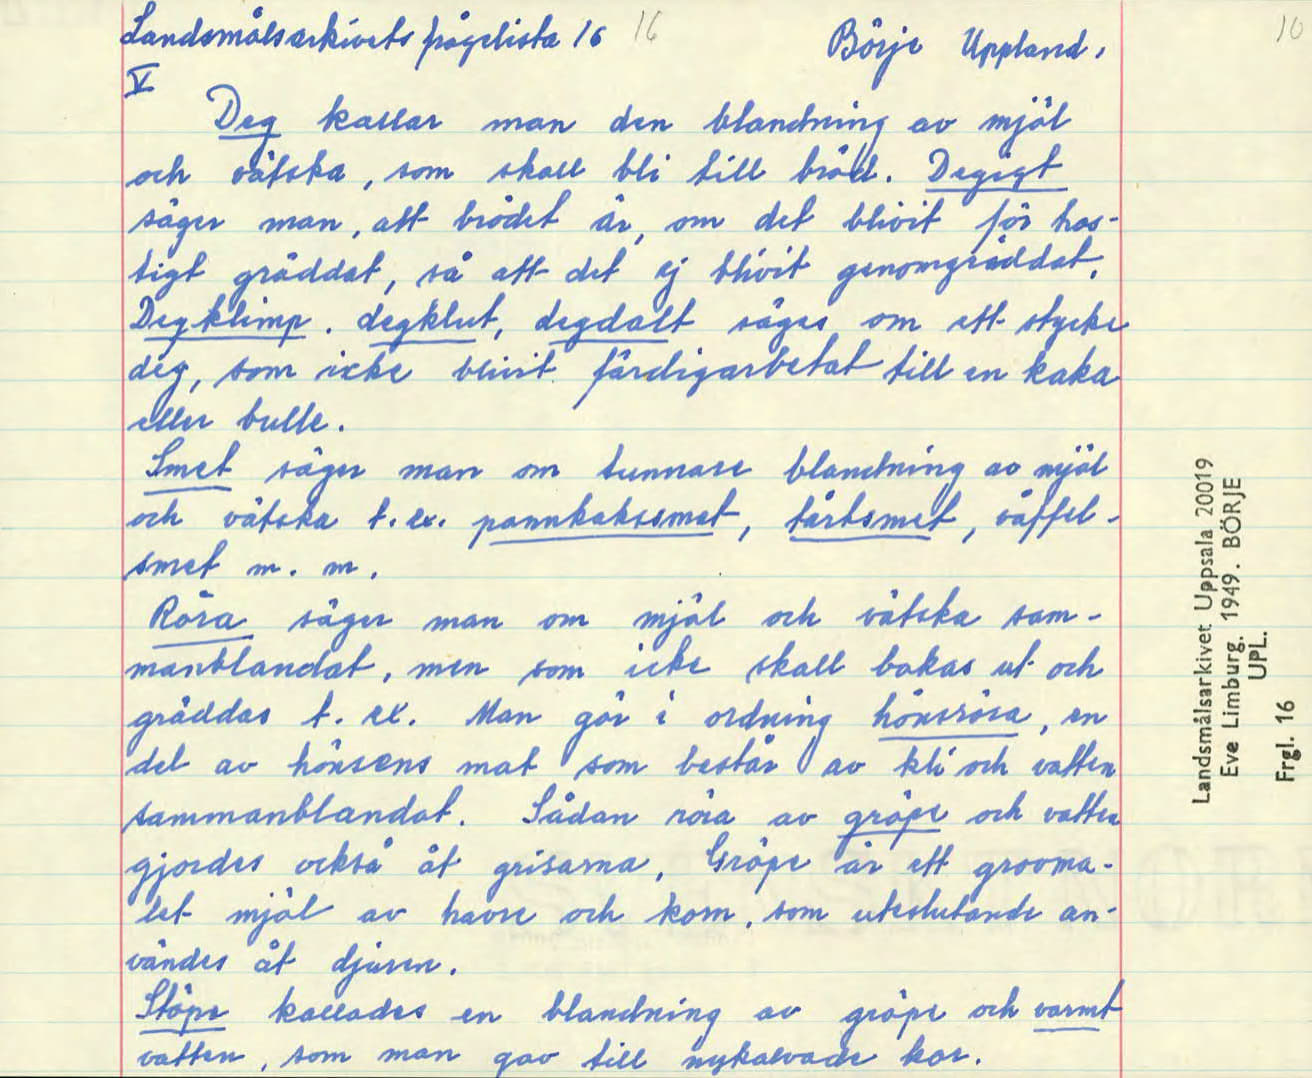 Landsmålsarkivets frågelista 16 16 Börje Uppland. 10
V
Deg kallar man den blandning av mjöl
och vätska, som skall bli till bröd. Degigt
säger man, att brödet är, om det blivit för has-
tigt gräddat, så att det ej blivit genomgräddat.
Degklimp. degklut, degdalt säges om ett stycke
deg, som icke blivit färdigarbetat till en kaka
eller bulle.
Smet säger man om tunnare blandning av mjöl
och vätska t. ex. pannkakssmet, tårtsmet, våffel-
smet m. m.
Röra säger man om mjöl och vätska sam-
manblandat, men som icke skall bakas ut och
gräddas t. ex. Man gör i ordning hönsröra, en
del av hönsens mat som består av kli och vatten
sammanblandat. Sådan röra av gröpe och vatten
gjordes också åt grisarna. Gröpe är ett grovma-
let mjöl av havre och korn, som uteslutande an-
vändes åt djuren.
Stöpe kallades en blandning av gröpe och varmt
vatten, som man gav till nykalvade kor.
Landsmålsarkivet Uppsala 20019
Eve Limburg. 1949. BÖRJE
UPL.
Frgl. 16